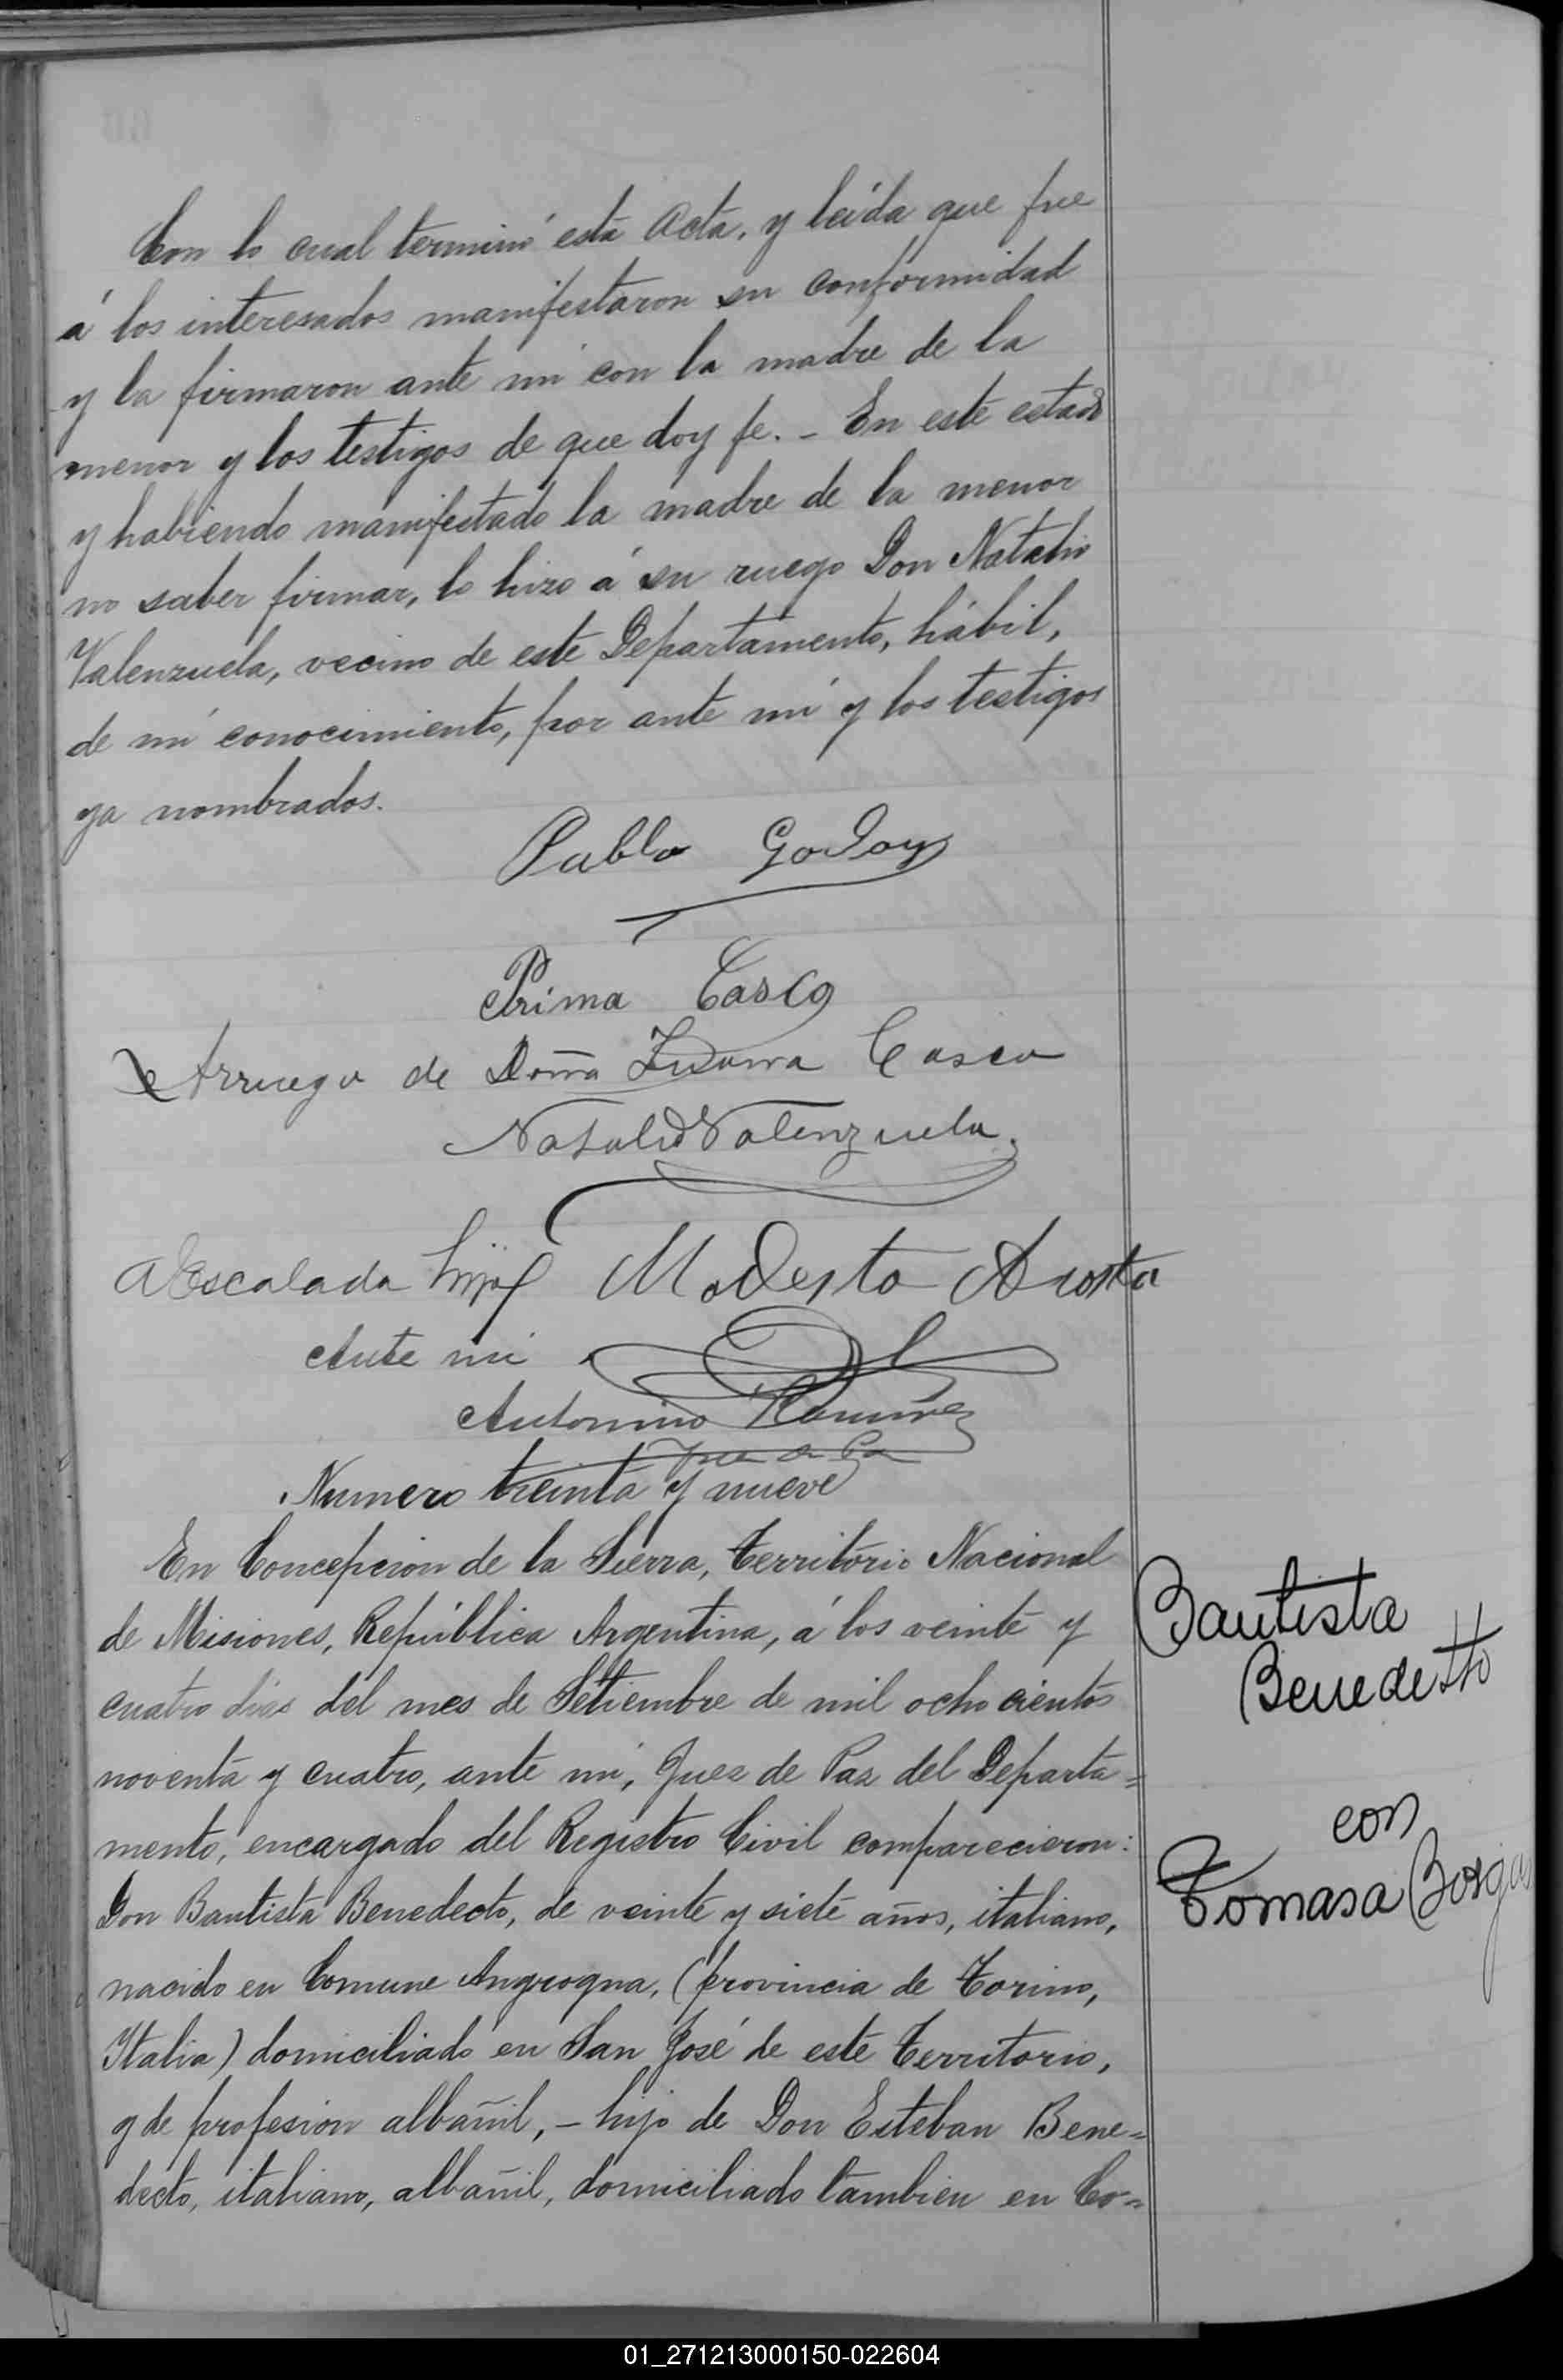 Con lo cual terminó esta Acta, y leída que fue
á los interesados manifestaron su conformidad
y la firmaron ante mí con la madre de la
menor y los testigos de que doy fe. - En este estado
y habiendo manifestado la madre de la menor
no saber firmar, lo hizo á su ruego Don Natalio
Valenzuela, vecino de este Departamento, hábil,
de mi conocimiento, por ante mí y los testigos
ya nombrados.
Pablo Godoy
Prima Casco
Arruego de Doña Casco
Natalio Valenzuela.
A Escalada hijo Modesto Acosta
Ante mi
Antonino Ramirez
Juez de Paz
Numero treinta y nueve
En Concepcion de la Sierra, Territorio Nacional
de Misiones, República Argentina, á los veinte y
cuatro dias del mes de Setiembre de mil ochocientos
noventa y cuatro, ante mí, Juez de Paz del Departa=
mento, encargado del Registro Civil comparecieron:
Don Bautista Benedecto, de veinte y siete años, italiano,
nacido en Comune Angrogna, (provincia de Torino,
Italia) domiciliado en San José de este Territorio,
y de profesion albañil, - hijo de Don Esteban Bene=
decto, italiano, albañil, domiciliado tambien en Co=
Bautista
Benedetto
con
Tomasa Borgas
01_271213000150-022604